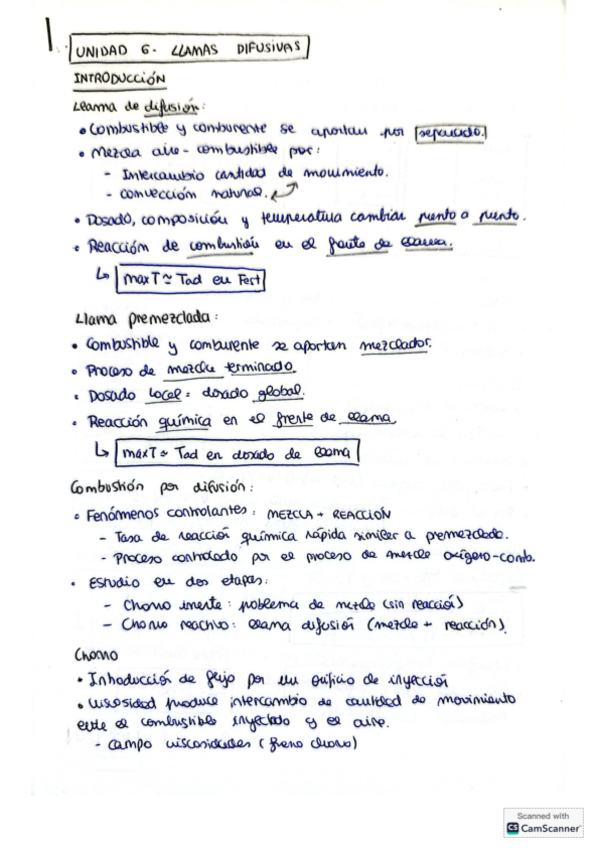 UNIDAD 6 - LLAMAS DIFUSIVAS
INTRODUCCIÓN
Llama de difusión:
• Combustible y comburente se aportan por separado.
• Mezcla aire - combustible por:
- Intercambio cantidad de movimiento.
- convección natural.
• Dosado, composición y temperatura cambian punto a punto.
• Reacción de combustión en el frente de llama.
↳ maxT ≃ Tad en Fest
Llama premezclada:
• Combustible y comburente se aportan mezclados.
• Proceso de mezcla terminado.
• Dosado local = dosado global.
• Reacción química en el frente de llama
↳ maxT ≃ Tad en dosado de llama
Combustión por difusión:
• Fenómenos controlantes: MEZCLA + REACCIÓN
- Tasa de reacción química rápida similar a premezclado.
- Proceso controlado por el proceso de mezcla oxígeno-comb.
• Estudio en dos etapas:
- Chorro inerte: problema de mezcla (sin reacción)
- Chorro reactivo: llama difusión (mezcla + reacción).
Chorro
• Introducción de flujo por un orificio de inyección
• Viscosidad produce intercambio de cantidad de movimiento
entre el combustible inyectado y el aire.
- campo viscosidades (freno chorro)
Scanned with
CS CamScanner